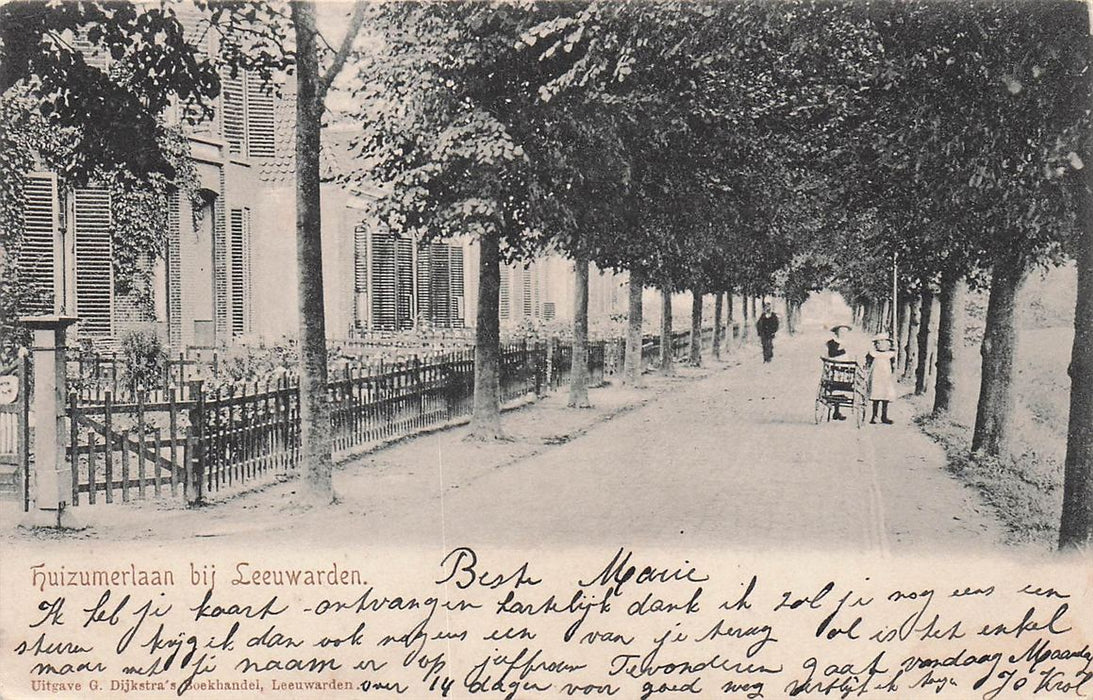 Huizumerlaan bij Leeuwarden.
Beste Marie
Ik heb je kaart ontvangen hartelijk dank ik zal je nog eens een
sturen krijg ik dan ook nogeens een van je terug al is het enkel
maar met je naam er op Juffrouw gaat vandaag Maandag
over 14 dagen voor goed weg
Uitgave G. Dijkstra's Boekhandel, Leeuwarden.